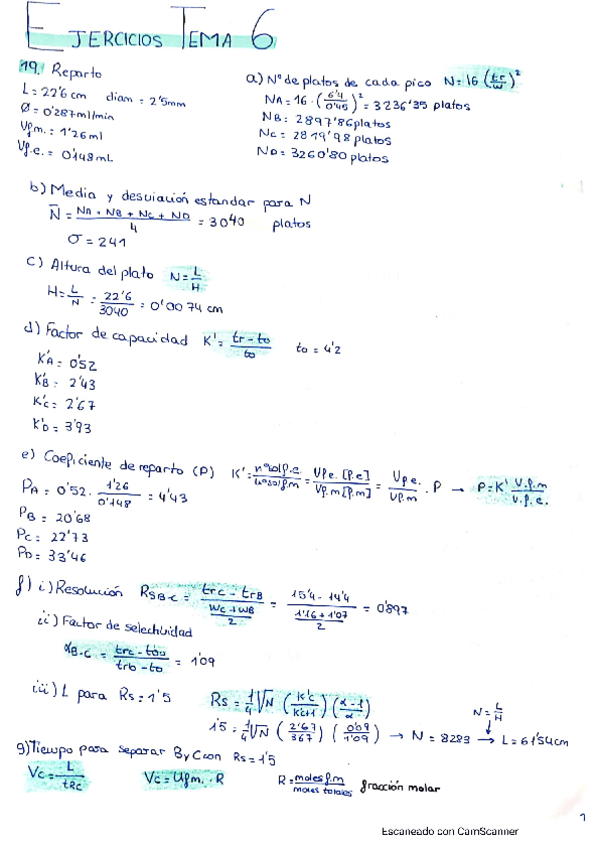 EJERCICIOS TEMA 6
19. Reparto
L = 22'6 cm diam = 2'5mm
Ø = 0'287 ml/min
Vp.m. = 1'26 ml
Vf.e. = 0'148 mL
a) Nº de platos de cada pico N = 16 (tr/w)²
NA = 16 · (6'4/0'45)² = 3236'35 platos
NB = 2897'86 platos
NC = 2819'98 platos
ND = 3260'80 platos
b) Media y desviación estandar para N
N̄ = NA + NB + NC + ND / 4 = 3040 platos
σ = 241
c) Altura del plato N = L/H
H = L/N = 22'6/3040 = 0'0074 cm
d) Factor de capacidad K' = tr - to / to to = 4'2
K'A = 0'52
K'B = 2'43
K'C = 2'67
K'D = 3'93
e) Coeficiente de reparto (P) K' = nºsol f.e / nºsol f.m = Vf.e. [f.e] / Vf.m [f.m] = Vf.e. / Vf.m · P → P = K' V.f.m / V.f.e.
PA = 0'52 · 1'26 / 0'148 = 4'43
PB = 20'68
PC = 22'73
PD = 33'46
f) i) Resolución RS B-C = trC - trB / (WC + WB / 2) = 15'4 - 14'4 / (1'16 + 1'07 / 2) = 0'897
ii) Factor de selectividad
αB-C = trC - to / trb - to = 1'09
iii) L para Rs = 1'5 Rs = 1/4 √N (K'C / K'C+1) (α-1 / α) N = L/H
1'5 = 1/4 √N (2'67 / 3'67) (0'09 / 1'09) → N = 8283 → L = 61'54 cm
g) Tiempo para separar B y C con Rs = 1'5
VC = L / tRC VC = Uf.m. · R R = moles f.m / moles totales fracción molar
1
Escaneado con CamScanner